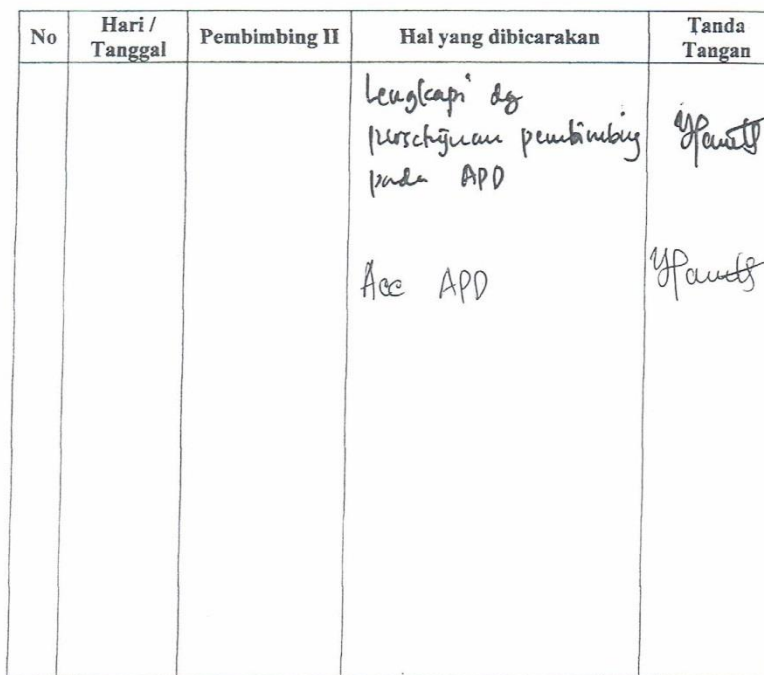 No Hari / Tanggal Pembimbing II Hal yang dibicarakan Tanda Tangan
Lengkapi dg
persetujuan pembimbing
pada APD
Acc APD